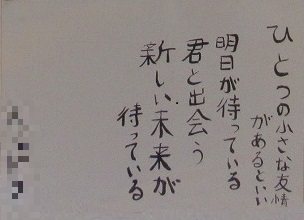 ひとつの小さな友情
があるといい
明日が待っている
君と出会う
新しい未来が
待っている